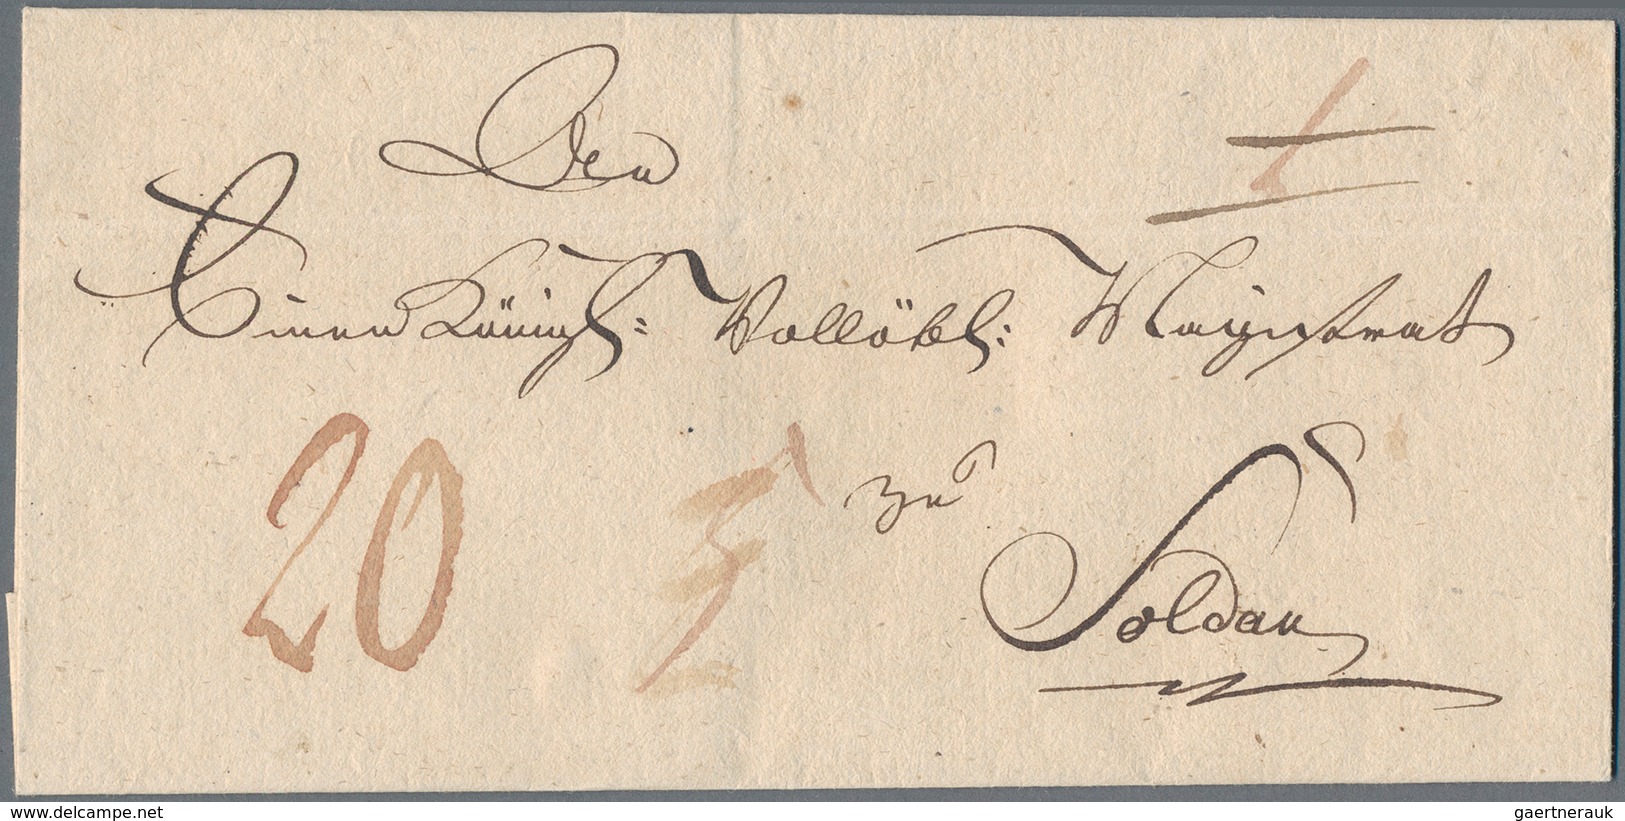 An
Einen Königl: Wollöbl: Magistrat
20
zu
Soldau
www.delcampe.net
gaertnerauk